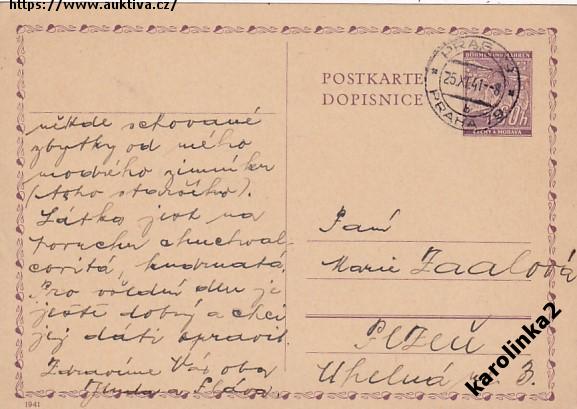 https://www.auktiva.cz/
POSTKARTE
DOPISNICE
BÖHMEN UND MÄHREN
ČECHY A MORAVA
PRAG 79
25.XI.41.-8
b
PRAHA 79
někde schované
zbytky od mého
modrého zimníku
(toho staršího).
Látka jest na
povrchu chuchval-
covitá, kudrnatá.
Pro všední dny je
ještě dobrý a chci
jej dáti spravit.
Zdravíme Vás oba
a Sláva.
Paní
Marie
Plzeň
Uhelná 3.
1941
karolinka2